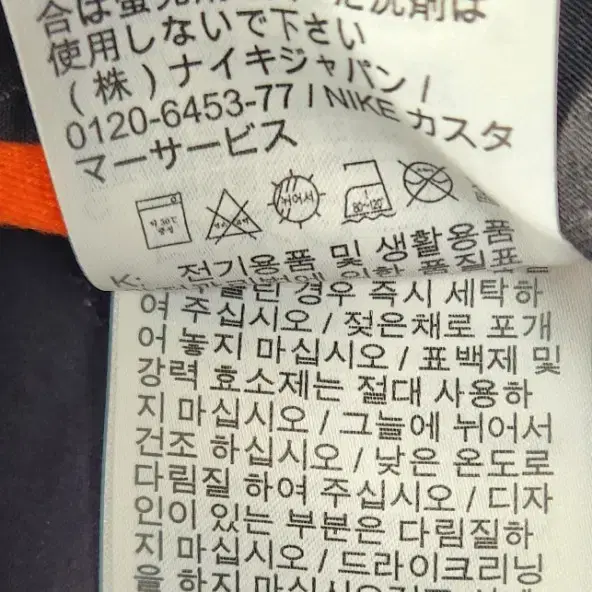 使用しないで下さい
(株)ナイキジャパン /
0120-6453-77 / NIKE カスタ
マーサービス
약 30℃
중성
뉘어서
80~120℃
K:
전기용품 및 생활용품
경우 즉시 세탁하
여 주십시오 / 젖은채로 포개
어 놓지 마십시오 / 표백제 및
강력 효소제는 절대 사용하
지 마십시오 / 그늘에 뉘어서
건조 하십시오 / 낮은 온도로
다림질 하여 주십시오 / 디자
인이 있는 부분은 다림질하
지 마십시오 / 드라이크리닝
을 하지 마십시오